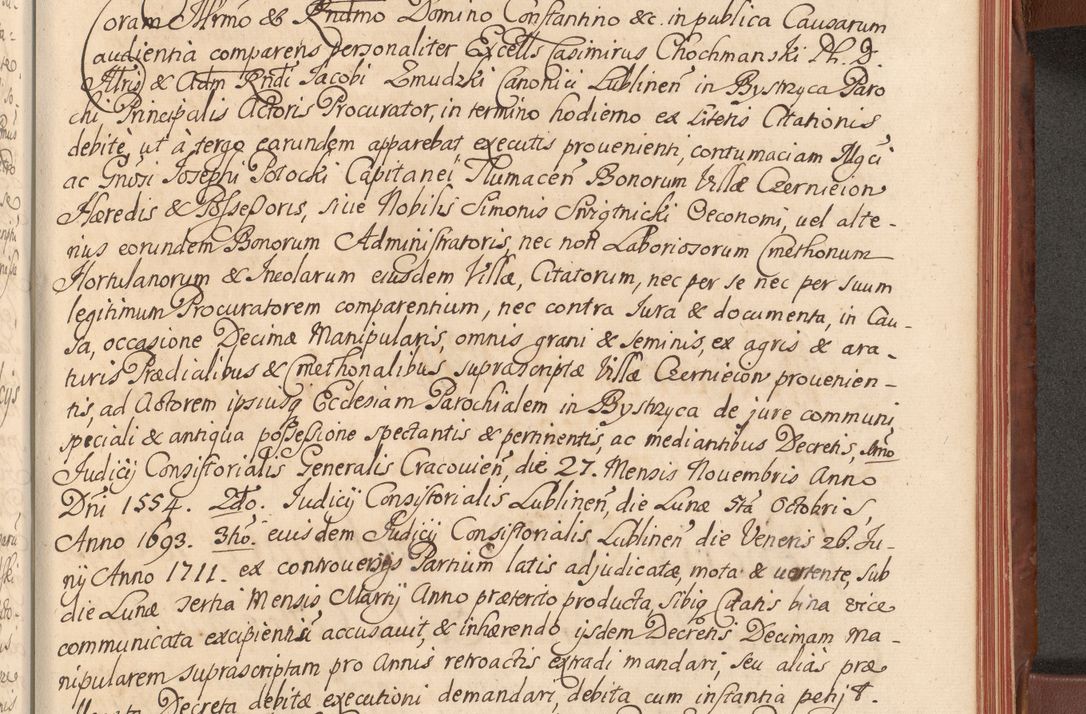 Coram Illrmo & Rndmo Domino Constantino &c. in publica Causarum
audientia comparens personaliter Excells Casimirus Chochmanski Ph. D.
Illris & Adm Rndi Jacobi Zmudzki Canonici Lublinen in Bystrzyca Paro
chi Principalis Actoris Procurator, in termino hodierno ex Literis Citationis
debitè, ut à tergo earundem apparebat executis prouenienti, contumaciam Mgci
ac Gnosi Josephi Potocki Capitanei Tlumacen Bonorum Villæ Czernieion
Hæredis & Possessoris, siue Nobilis Simonis Swigtnicki Oeconomi, uel alte-
rius eorundem Bonorum Administratoris, nec non Laboriosorum Cmethonum
Hortulanorum & Incolarum eiusdem Villæ, Citatorum, nec per se nec per suum
legitimum Procuratorem comparentium, nec contra Jura & documenta, in Cau-
sa, occasione Decimæ Manipularis, omnis grani & seminis, ex agris & ara-
turis Prædialibus & Cmethonalibus suprascriptæ Villæ Czernieion prouenien-
tis, ad Actorem ipsiusq Ecclesiam Parochialem in Bystrzyca de jure communi
speciali & antiqua possessione spectantis & pertinentis, ac mediantibus Decretis, Imo
Judicij Consistorialis Generalis Cracouien, die 27. Mensis Nouembris Anno
Dni 1554. 2do. Judicij Consistorialis Lublinen, die Lunæ 5ta Octobris
Anno 1693. 3tio. eiusdem Judicij Consistorialis Lublinen die Veneris 26. Ju-
nij Anno 1711. ex controuersijs Partium latis adjudicatæ, mota & uertente, sub
die Lunæ tertia Mensis Martij Anno præterito producta, sibiq Citatis bina vice
communicata excipientis accusauit, & inhærendo ijsdem Decretis Decimam ma-
nipularem suprascriptam pro Annis retroactis extradi mandari, seu aliàs præ
Decreta debitæ executioni demandari, debita cum instantia petijt.